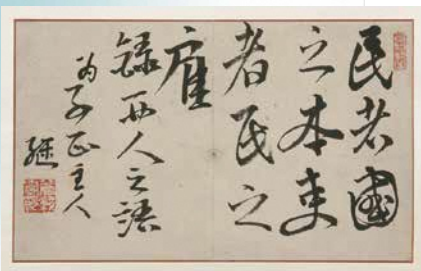 民者國
之本吏
者民之
雇
錄人之語
為子正主人
繼